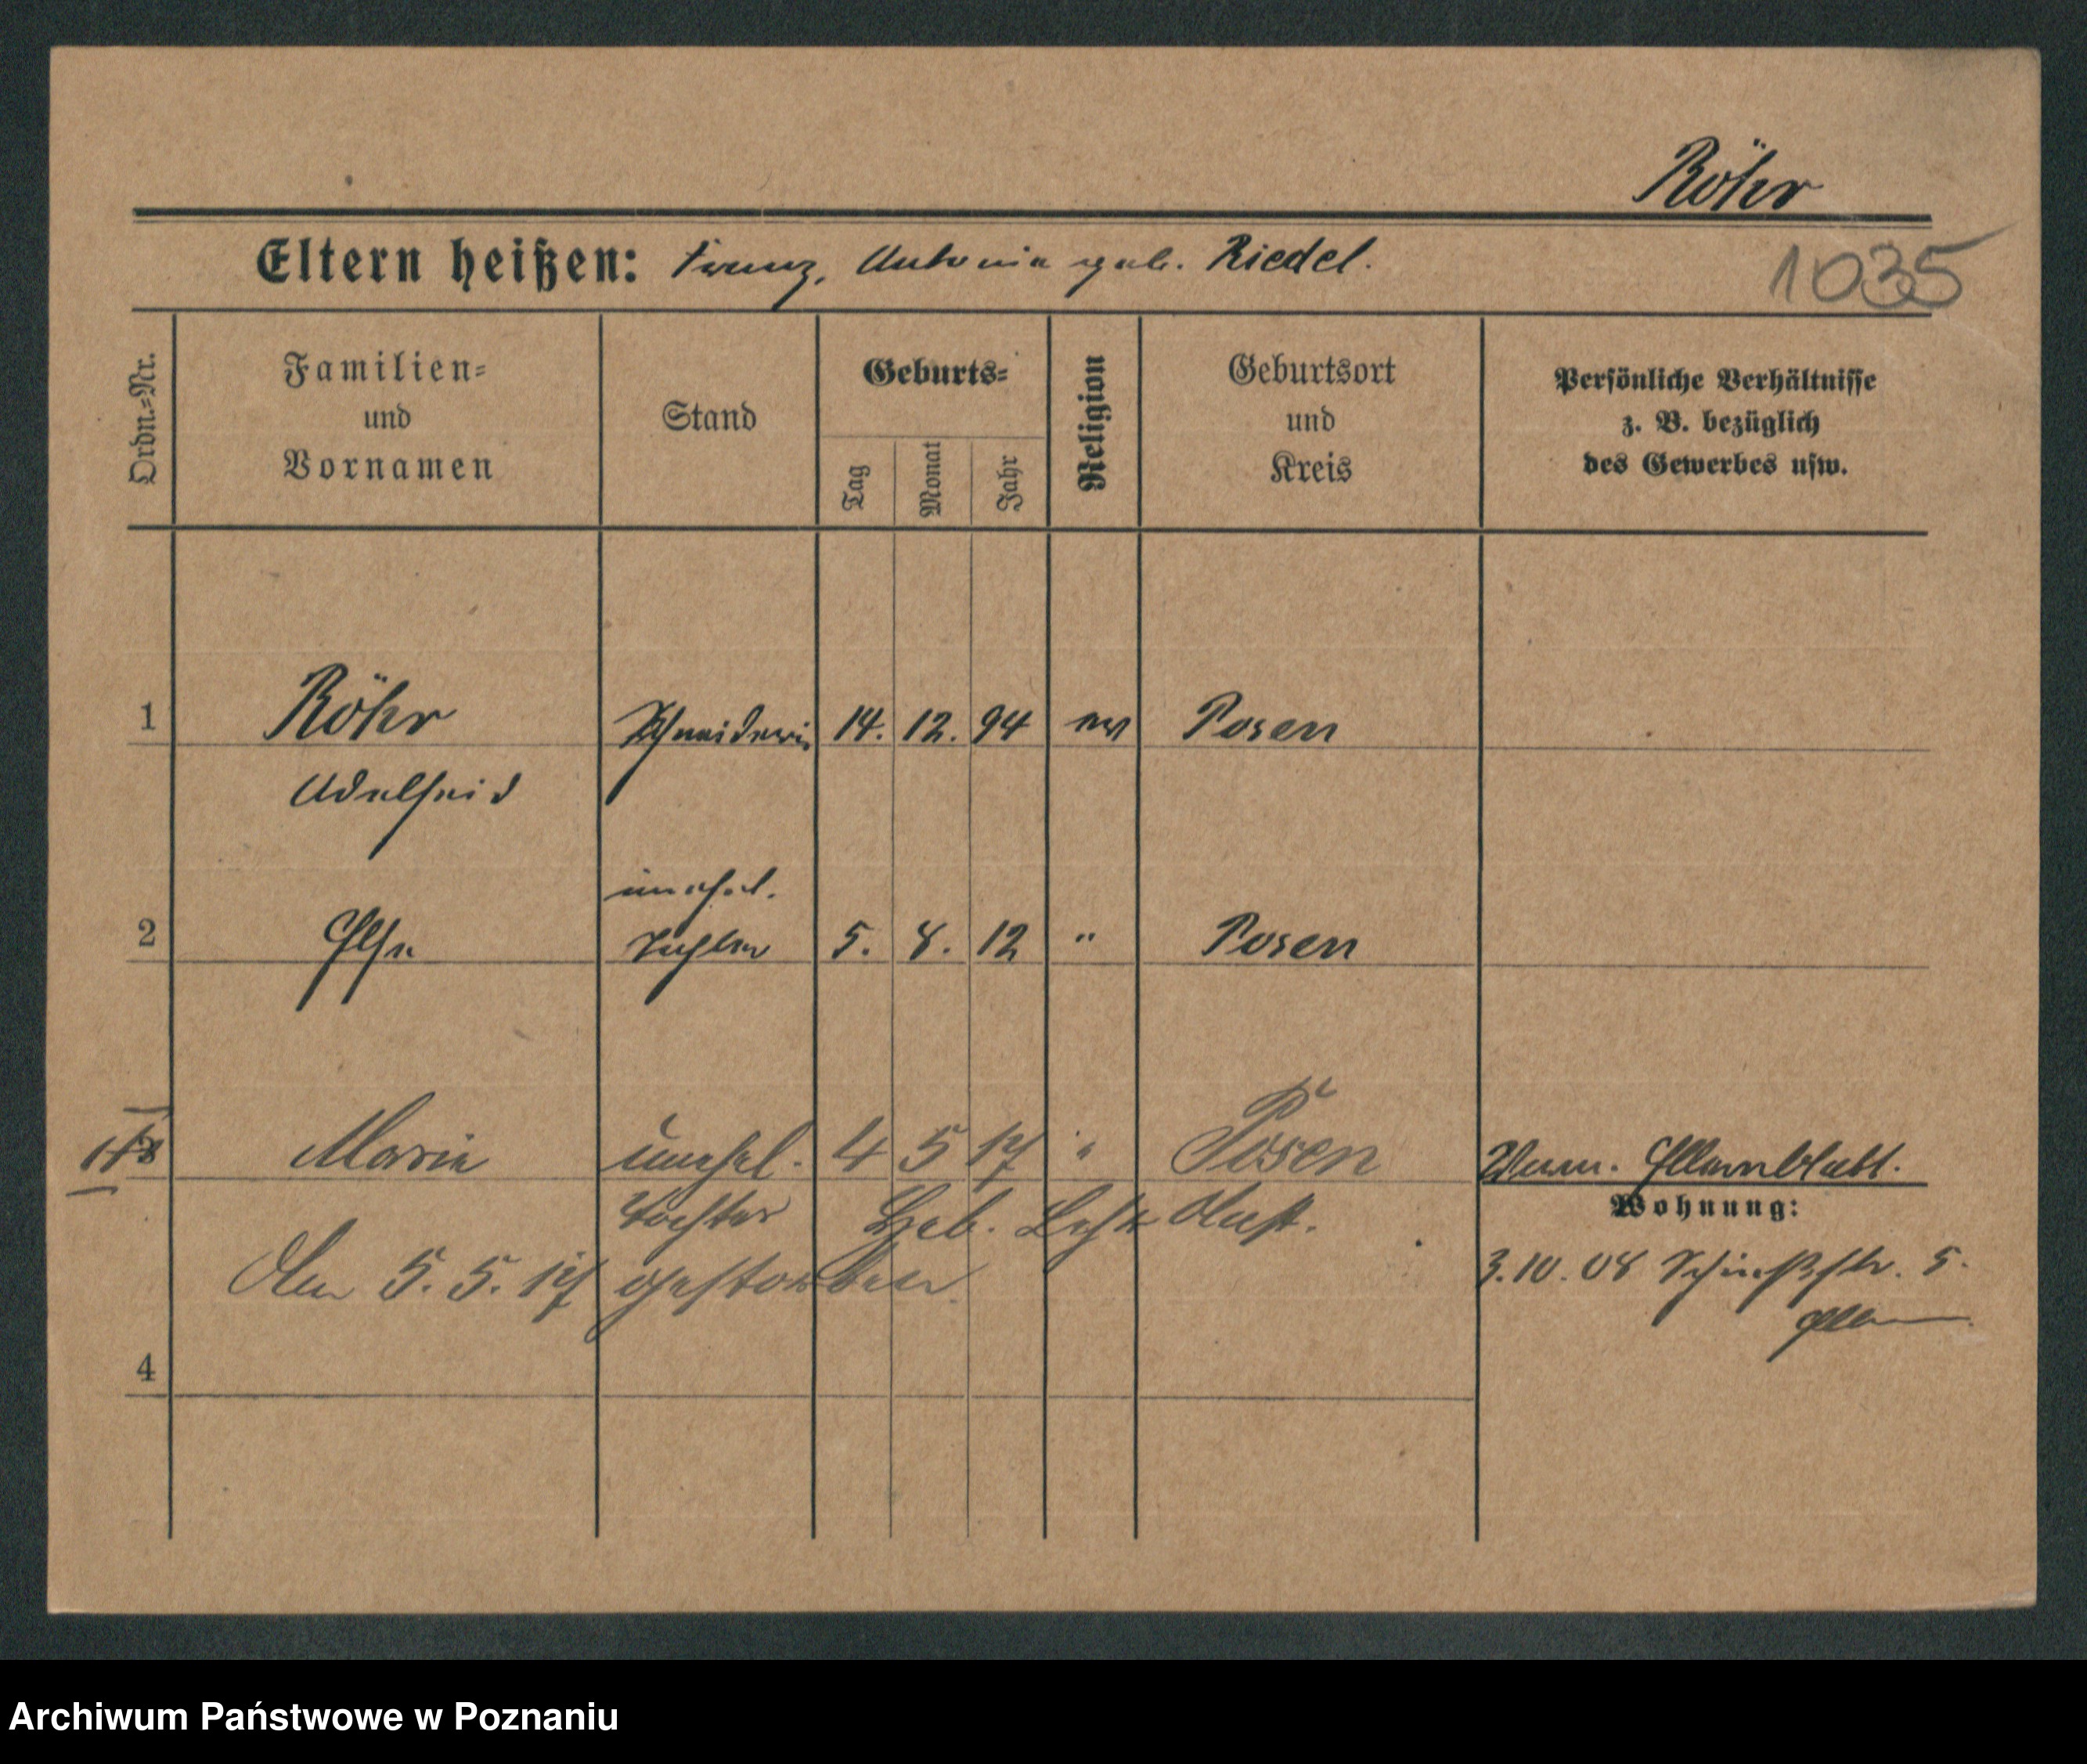 Röhr
Eltern heißen: Franz, Antonia geb. Riedel.
1035
Ordn.-Nr.
Familien-
und
Vornamen
Stand
Geburts-
Tag
Monat
Jahr
Religion
Geburtsort
und
Kreis
Persönliche Verhältnisse
z. B. bezüglich
des Gewerbes usw.
1 Röhr Schneiderin 14. 12. 94 ev Posen
Adelheid
unehel.
2 Else Tochter 5. 8. 12 " Posen
Marie unehel. 4 5 17 " Posen
Elternblatt.
Tochter Heb. Anst.
Wohnung:
Am 5. 5. 17 gestorben.
3.10.08 Schießstr. 5.
4
Archiwum Państwowe w Poznaniu